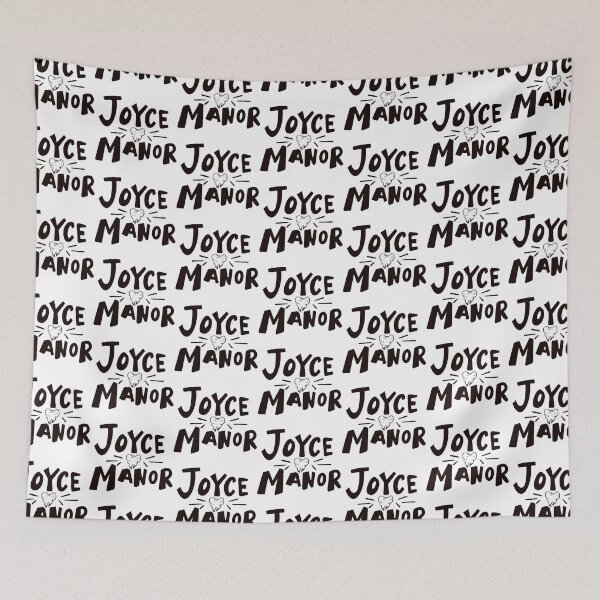 JOYCE MANOR JOYCE MANOR JOYCE MANOR JOYCE
MANOR JOYCE MANOR JOYCE MANOR JOYCE MANOR
JOYCE MANOR JOYCE MANOR JOYCE MANOR JOYCE
MANOR JOYCE MANOR JOYCE MANOR JOYCE MANOR
JOYCE MANOR JOYCE MANOR JOYCE MANOR JOYCE
MANOR JOYCE MANOR JOYCE MANOR JOYCE MANOR
JOYCE MANOR JOYCE MANOR JOYCE MANOR JOYCE
MANOR JOYCE MANOR JOYCE MANOR JOYCE MANOR
JOYCE MANOR JOYCE MANOR JOYCE MANOR JOYCE
MANOR JOYCE MANOR JOYCE MANOR JOYCE MANOR
JOYCE MANOR JOYCE MANOR JOYCE MANOR JOYCE
MANOR JOYCE MANOR JOYCE MANOR JOYCE MANOR